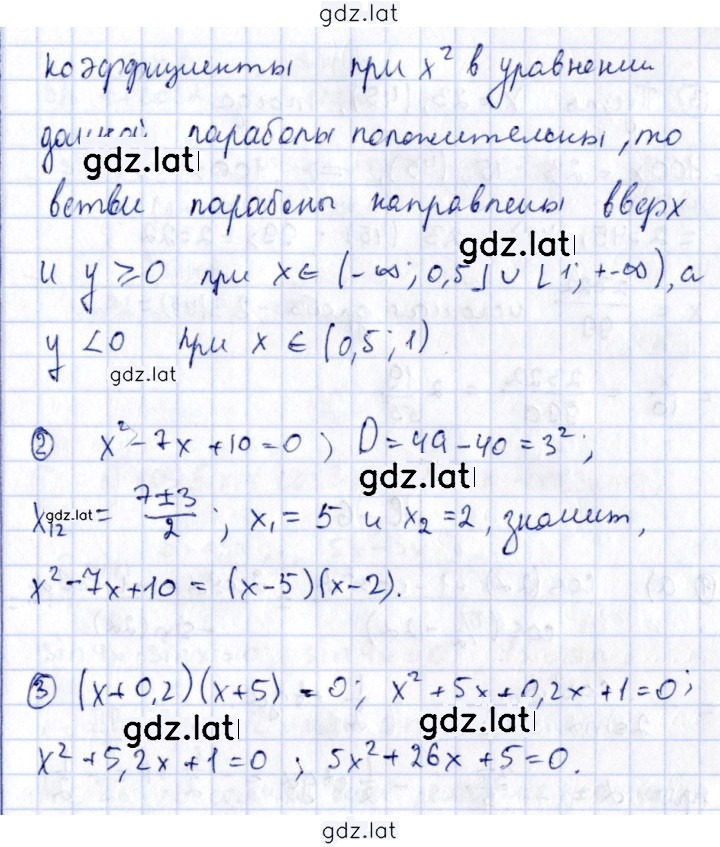 gdz.lat
коэффициенты при x² в уравнении
данной параболы положительны, то
gdz.lat
ветви параболы направлены вверх
gdz.lat
и y ⩾ 0 при x ∈ (-∞; 0,5] ∪ [1; +∞), а
y < 0 при x ∈ (0,5; 1)
gdz.lat
② x² - 7x + 10 = 0; D = 49 - 40 = 3²;
gdz.lat
x₁₂ gdz.lat = (7 ± 3)/2; x₁ = 5 и x₂ = 2, значит,
x² - 7x + 10 = (x - 5)(x - 2).
③ (x + 0,2)(x + 5) = 0; x² + 5x + 0,2x + 1 = 0;
gdz.lat gdz.lat
x² + 5,2x + 1 = 0; 5x² + 26x + 5 = 0.
gdz.lat